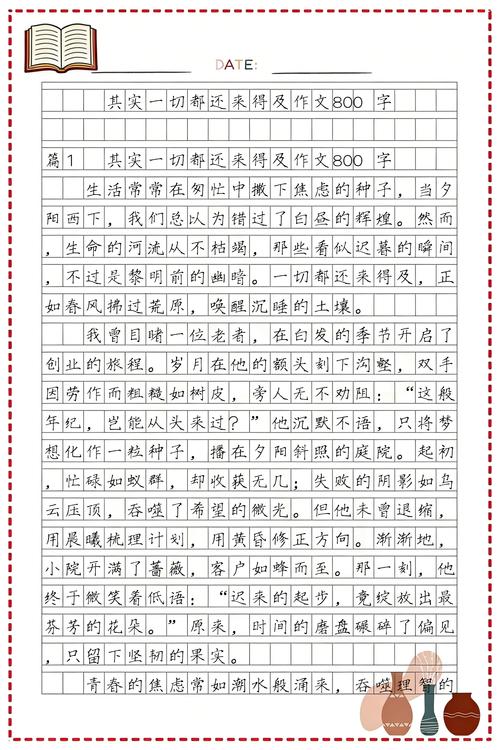 DATE:
其实一切都还来得及作文800 字
篇1 其实一切都还来得及作文800 字
生活常常在匆忙中撒下焦虑的种子，当夕
阳西下，我们总以为错过了白昼的辉煌。然而
，生命的河流从不枯竭，那些看似迟暮的瞬间
，不过是黎明前的幽暗。一切都还来得及，正
如春风拂过荒原，唤醒沉睡的土壤。
我曾目睹一位老者，在白发的季节开启了
创业的旅程。岁月在他的额头刻下沟壑，双手
因劳作而粗糙如树皮，旁人无不劝阻：“这般
年纪，岂能从头来过？”他沉默不语，只将梦
想化作一粒种子，播在夕阳斜照的庭院。起初
，忙碌如蚁群，却收获无几；失败的阴影如乌
云压顶，吞噬了希望的微光。但他未曾退缩，
用晨曦梳理计划，用黄昏修正方向。渐渐地，
小院开满了蔷薇，客户如蜂而至。那一刻，他
终于微笑着低语：“迟来的起步，竟绽放出最
芬芳的花朵。”原来，时间的磨盘碾碎了偏见
，只留下坚韧的果实。
青春的焦虑常如潮水般涌来，吞噬理智的